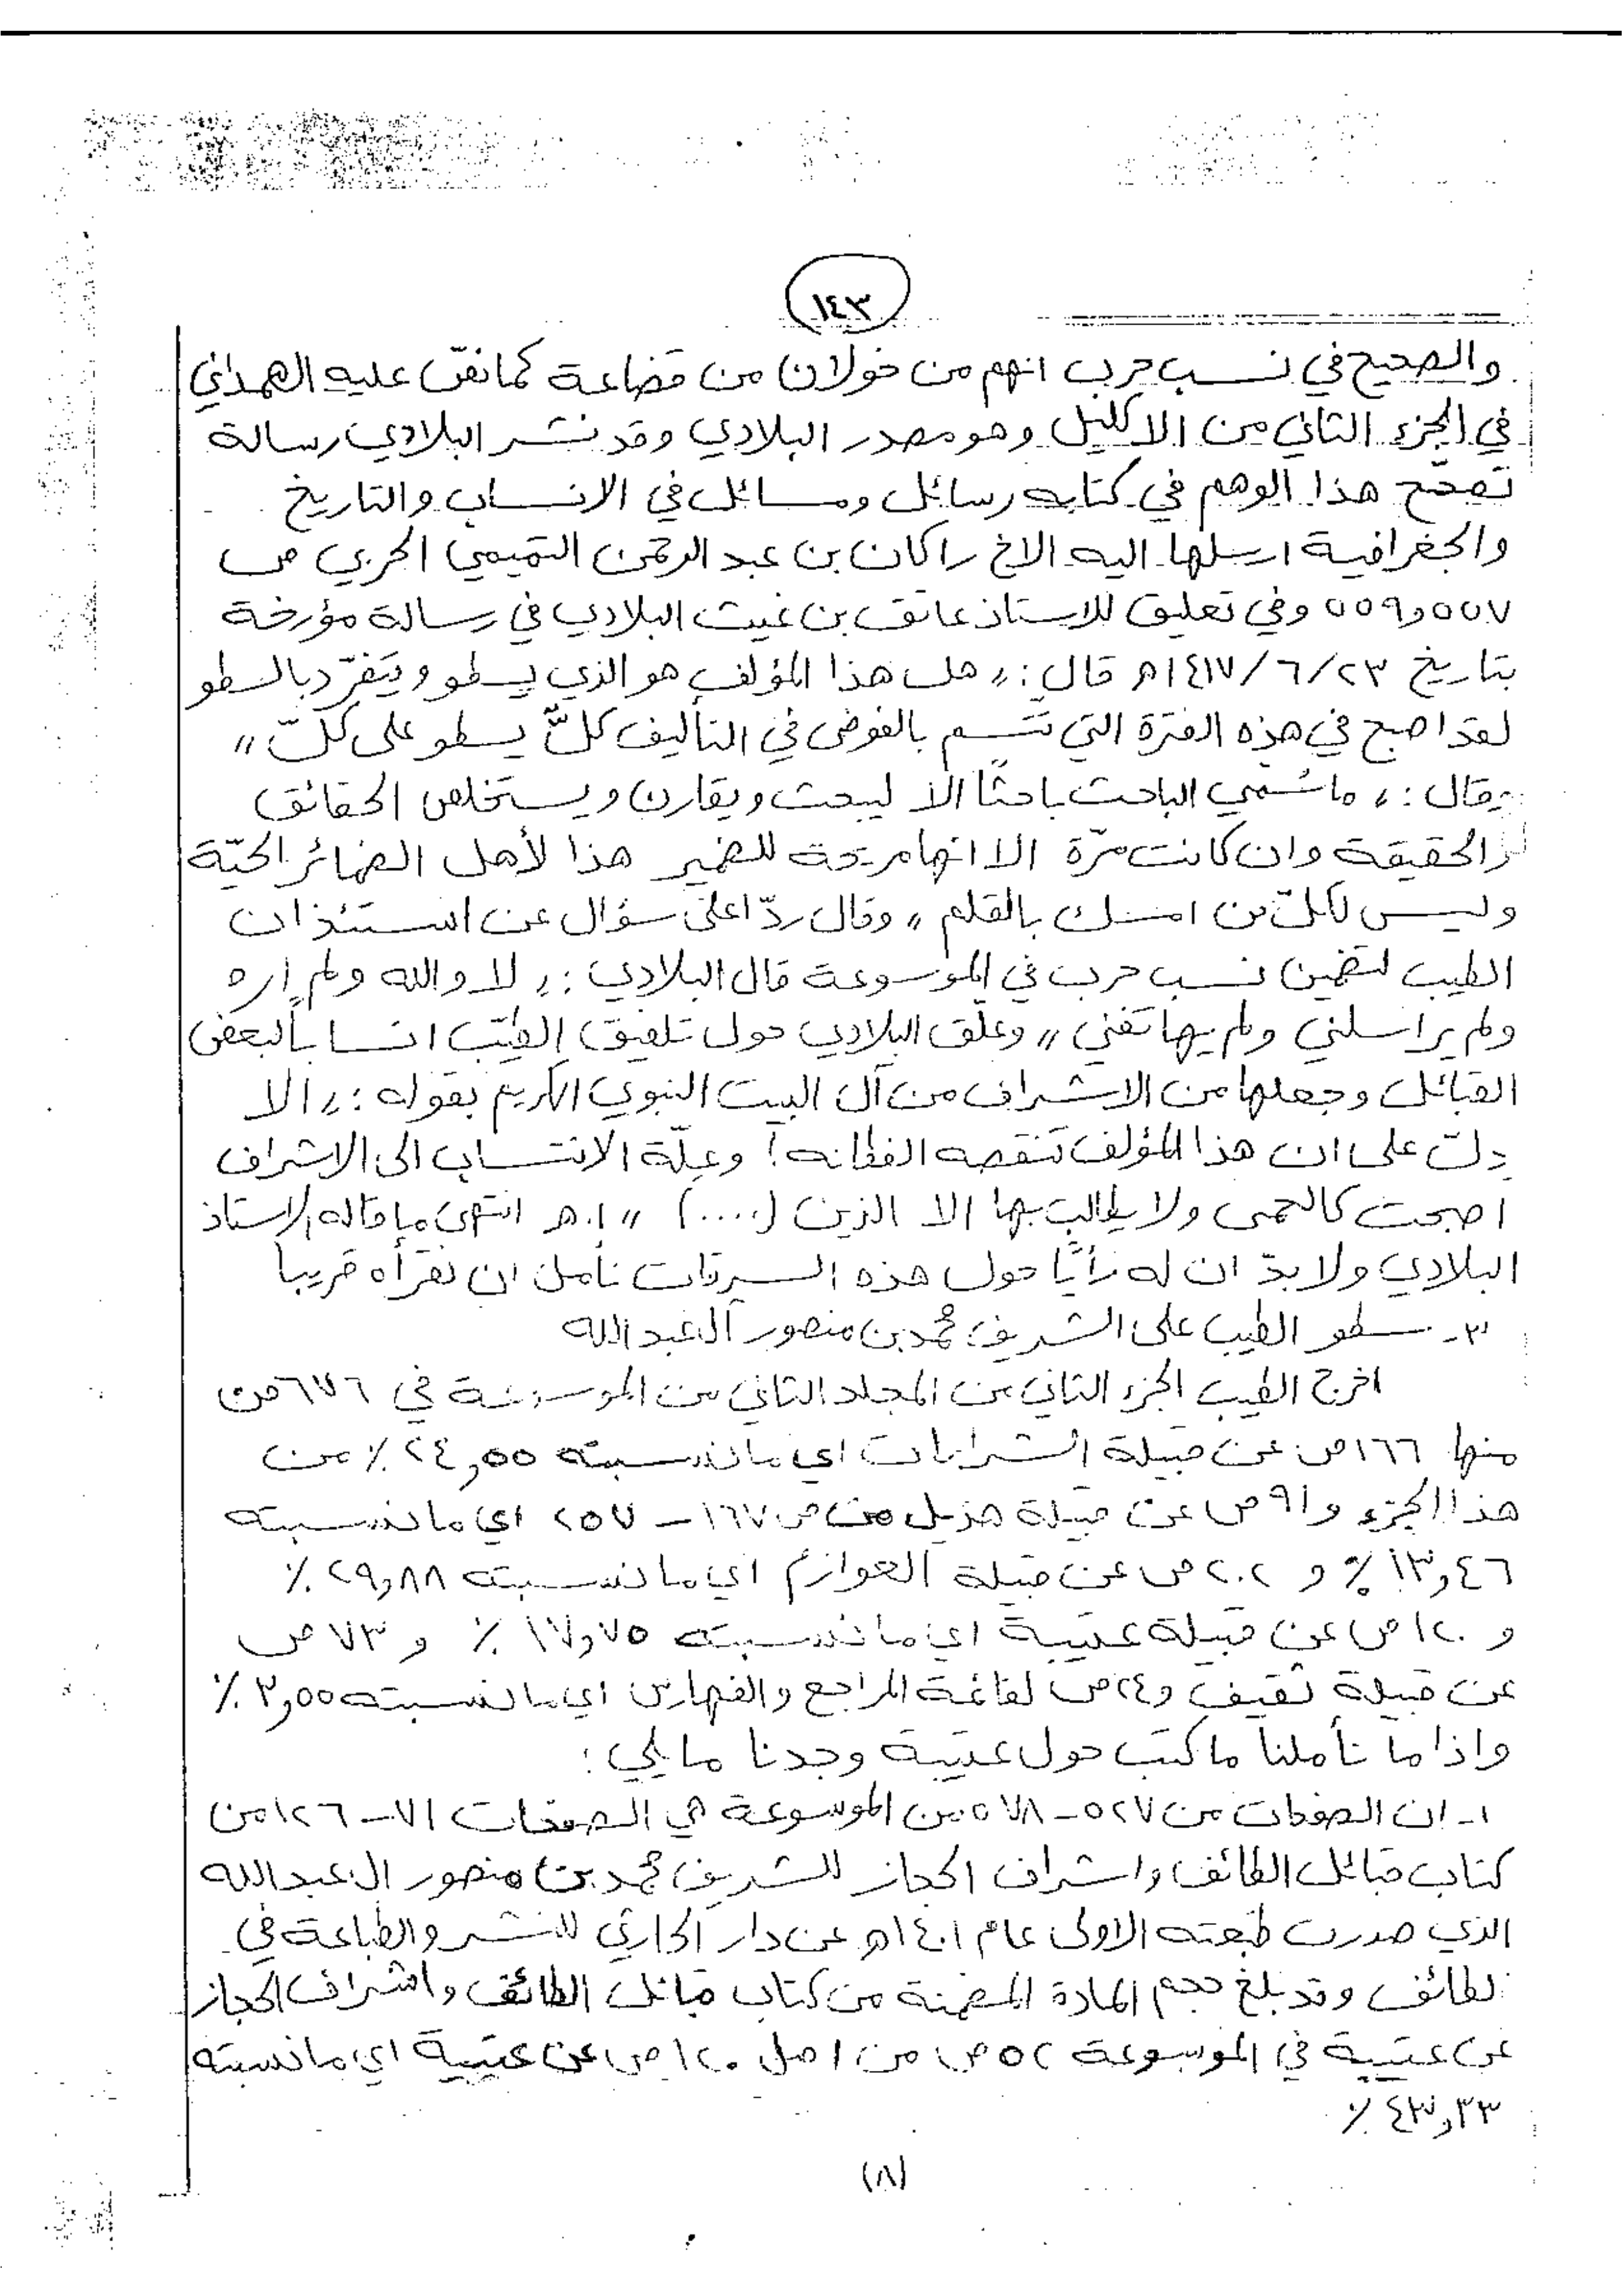 ١٤٣
والصحيح في نسب حرب انهم من خولان من قضاعة كما نصّ عليه الهمداني
في الجزء الثاني من الاكليل وهو مصدر البلادي وقد نشر البلادي رسالة
تصحّح هذا الوهم في كتابه رسائل ومسائل في الانساب والتاريخ
والجغرافية ارسلها اليه الاخ راكان بن عبد الرحمن التميمي الحربي ص
٥٥٧و٥٥٩ وفي تعليق للاستاذ عاتق بن غيث البلادي في رسالة مؤرخة
بتاريخ ٢٣/٦/١٤١٧هـ قال : « هل هذا المؤلف هو الذي يسطو ويتفرّد بالسطو
لقد اصبح في هذه الفترة التي تتسم بالفوضى في التأليف كلٌّ يسطو على كلّ »
وقال : « ما سُمي الباحث باحثًا الا ليبحث ويقارن ويستخلص الحقائق
والحقيقة وان كانت مرّة الا انها مريحة للضمير هذا لأهل الضمائر الحيّة
وليس لكلّ من امسك بالقلم » وقال ردّا على سؤال عن استئذان
الطيب لتضمين نسب حرب في الموسوعة قال البلادي : « لا والله ولم أره
ولم يراسلني ولم يهاتفني » وعلّق البلادي حول تلفيق الطيّب انسابا لبعض
القبائل وجعلها من الاشراف من آل البيت النبوي الكريم بقوله : « الا
دلّ على ان هذا المؤلف تنقصه الفطانه ! وعلّة الانتساب الى الاشراف
اصبحت كالحمى ولا يطالب بها الا الذين (....) » ا.هـ انتهى ما قاله الاستاذ
البلادي ولا بدّ ان له رأيًا حول هذه السرقات نأمل ان نقرأه قريبا
٣- سطو الطيب على الشريف محمد بن منصور آل عبدالله
اخرج الطيب الجزء الثاني من المجلد الثاني من الموسوعة في ٦٧٦ ص
منها ١٦٦ ص عن قبيلة الشرارات اي ما نسبته ٢٤,٥٥ ٪ من
هذا الجزء و ٩١ ص عن قبيلة هذيل من ص ١٦٧ - ٢٥٧ اي ما نسبته
١٣,٤٦ ٪ و ٢٠٢ ص عن قبيلة العوازم اي ما نسبته ٢٩,٨٨ ٪
و ١٢٠ ص عن قبيلة عتيبة اي ما نسبته ١٧,٧٥ ٪ و ٧٣ ص
عن قبيلة ثقيف و ٢٤ ص لقائمة المراجع والفهارس اي ما نسبته ٣,٥٥ ٪
واذا ما تأملنا ما كتب حول عتيبة وجدنا ما يلي :
١- ان الصفحات من ٥٢٧ - ٥٧٨ من الموسوعة هي الصفحات ٧١ - ١٢٦ من
كتاب قبائل الطائف واشراف الحجاز للشريف محمد بن منصور ال عبدالله
الذي صدرت طبعته الاولى عام ١٤٠١هـ عن دار الحارثي للنشر والطباعة في
لطائف وقد بلغ حجم المادة المضمنة من كتاب قبائل الطائف واشراف الحجاز
عن عتيبة في الموسوعة ٥٢ ص من اصل ١٢٠ ص عن عتيبة اي ما نسبته
٤٣,٣٣ ٪
(٨)